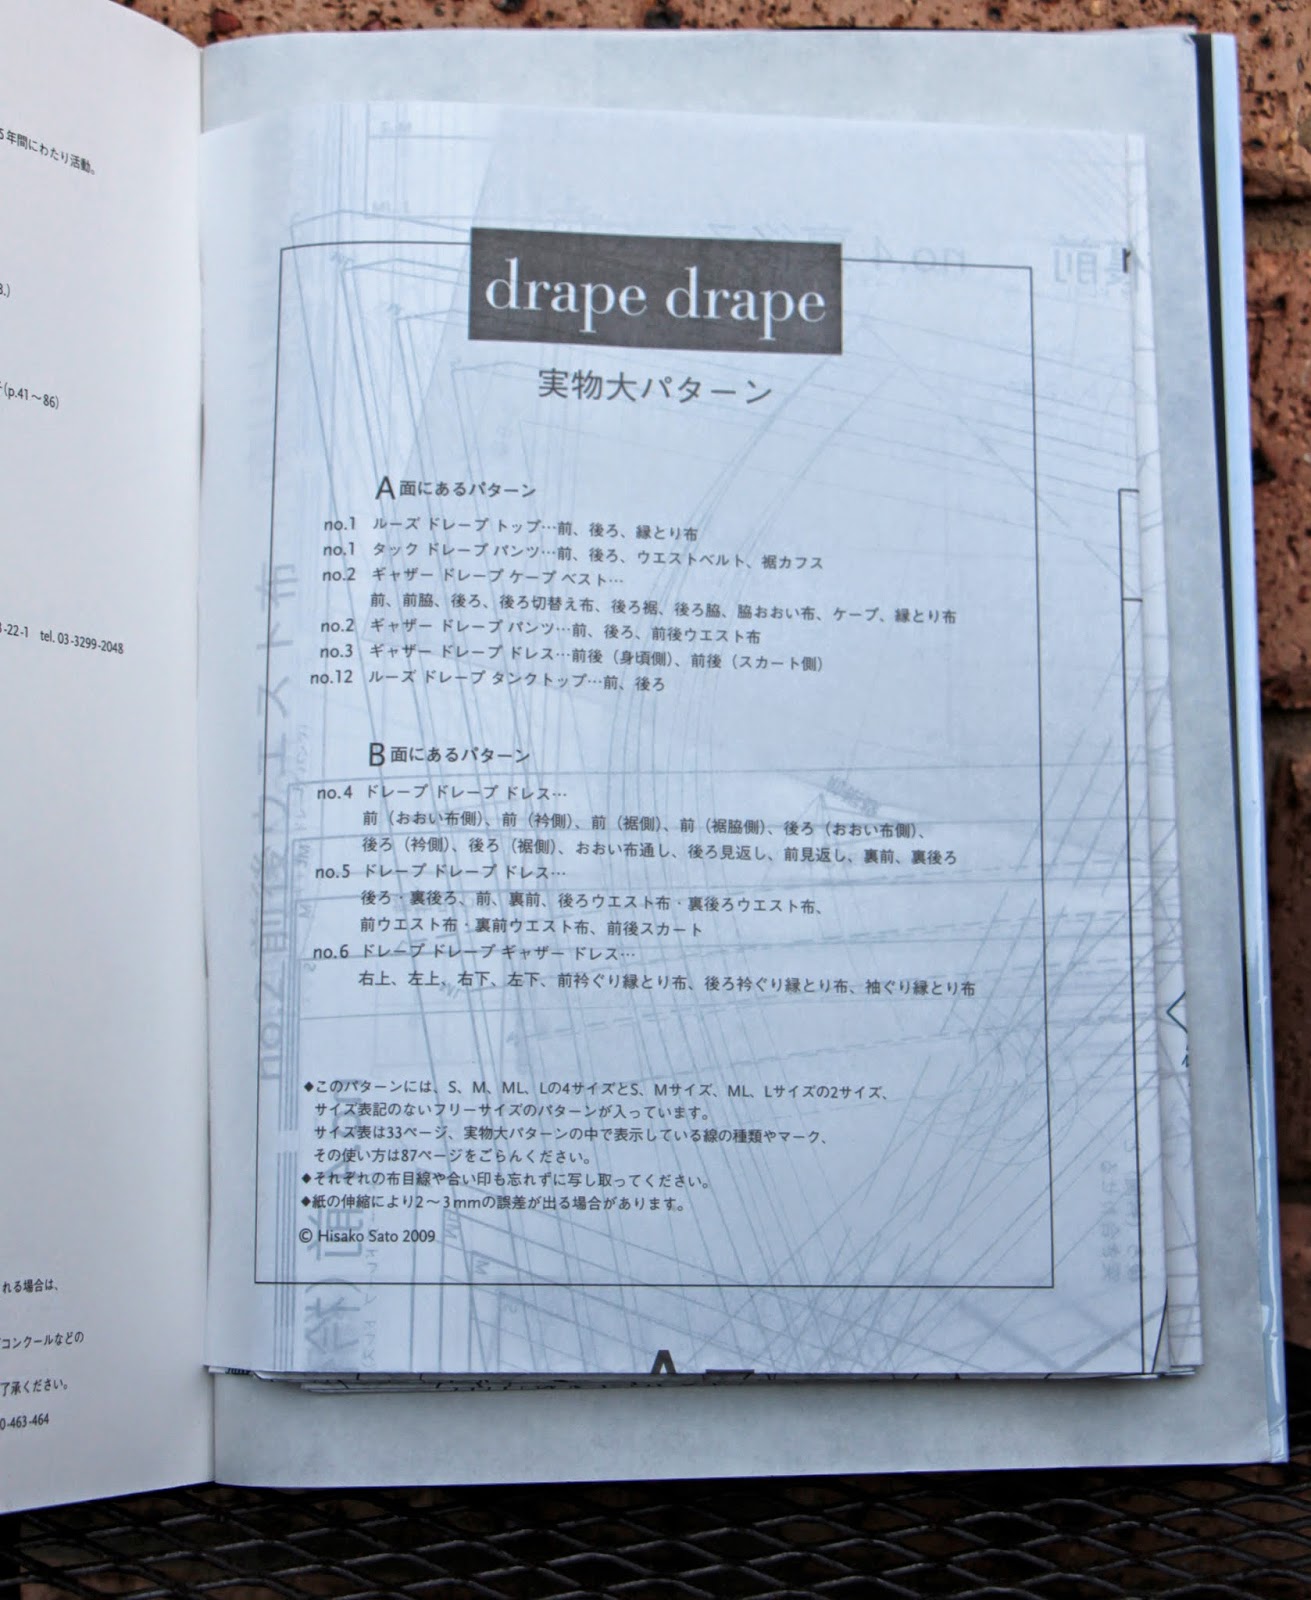 5年間にわたり活動。
3.)
(p.41〜86)
3-22-1 tel. 03-3299-2048
れる場合は、
コンクールなどの
了承ください。
0-463-464
drape drape
実物大パターン
A面にあるパターン
no.1 ルーズ ドレープ トップ…前、後ろ、縁とり布
no.1 タック ドレープ パンツ…前、後ろ、ウエストベルト、裾カフス
no.2 ギャザー ドレープ ケープ ベスト…
前、前脇、後ろ、後ろ切替え布、後ろ裾、後ろ脇、脇おおい布、ケープ、縁とり布
no.2 ギャザー ドレープ パンツ…前、後ろ、前後ウエスト布
no.3 ギャザー ドレープ ドレス…前後（身頃側）、前後（スカート側）
no.12 ルーズ ドレープ タンクトップ…前、後ろ
B面にあるパターン
no.4 ドレープ ドレープ ドレス…
前（おおい布側）、前（衿側）、前（裾側）、前（裾脇側）、後ろ（おおい布側）、
後ろ（衿側）、後ろ（裾側）、おおい布通し、後ろ見返し、前見返し、裏前、裏後ろ
no.5 ドレープ ドレープ ドレス…
後ろ・裏後ろ、前、裏前、後ろウエスト布・裏後ろウエスト布、
前ウエスト布・裏前ウエスト布、前後スカート
no.6 ドレープ ドレープ ギャザー ドレス…
右上、左上、右下、左下、前衿ぐり縁とり布、後ろ衿ぐり縁とり布、袖ぐり縁とり布
◆このパターンには、S、M、ML、Lの4サイズとS、Mサイズ、ML、Lサイズの2サイズ、
サイズ表記のないフリーサイズのパターンが入っています。
サイズ表は33ページ、実物大パターンの中で表示している線の種類やマーク、
その使い方は87ページをごらんください。
◆それぞれの布目線や合い印も忘れずに写し取ってください。
◆紙の伸縮により2〜3mmの誤差が出る場合があります。
© Hisako Sato 2009